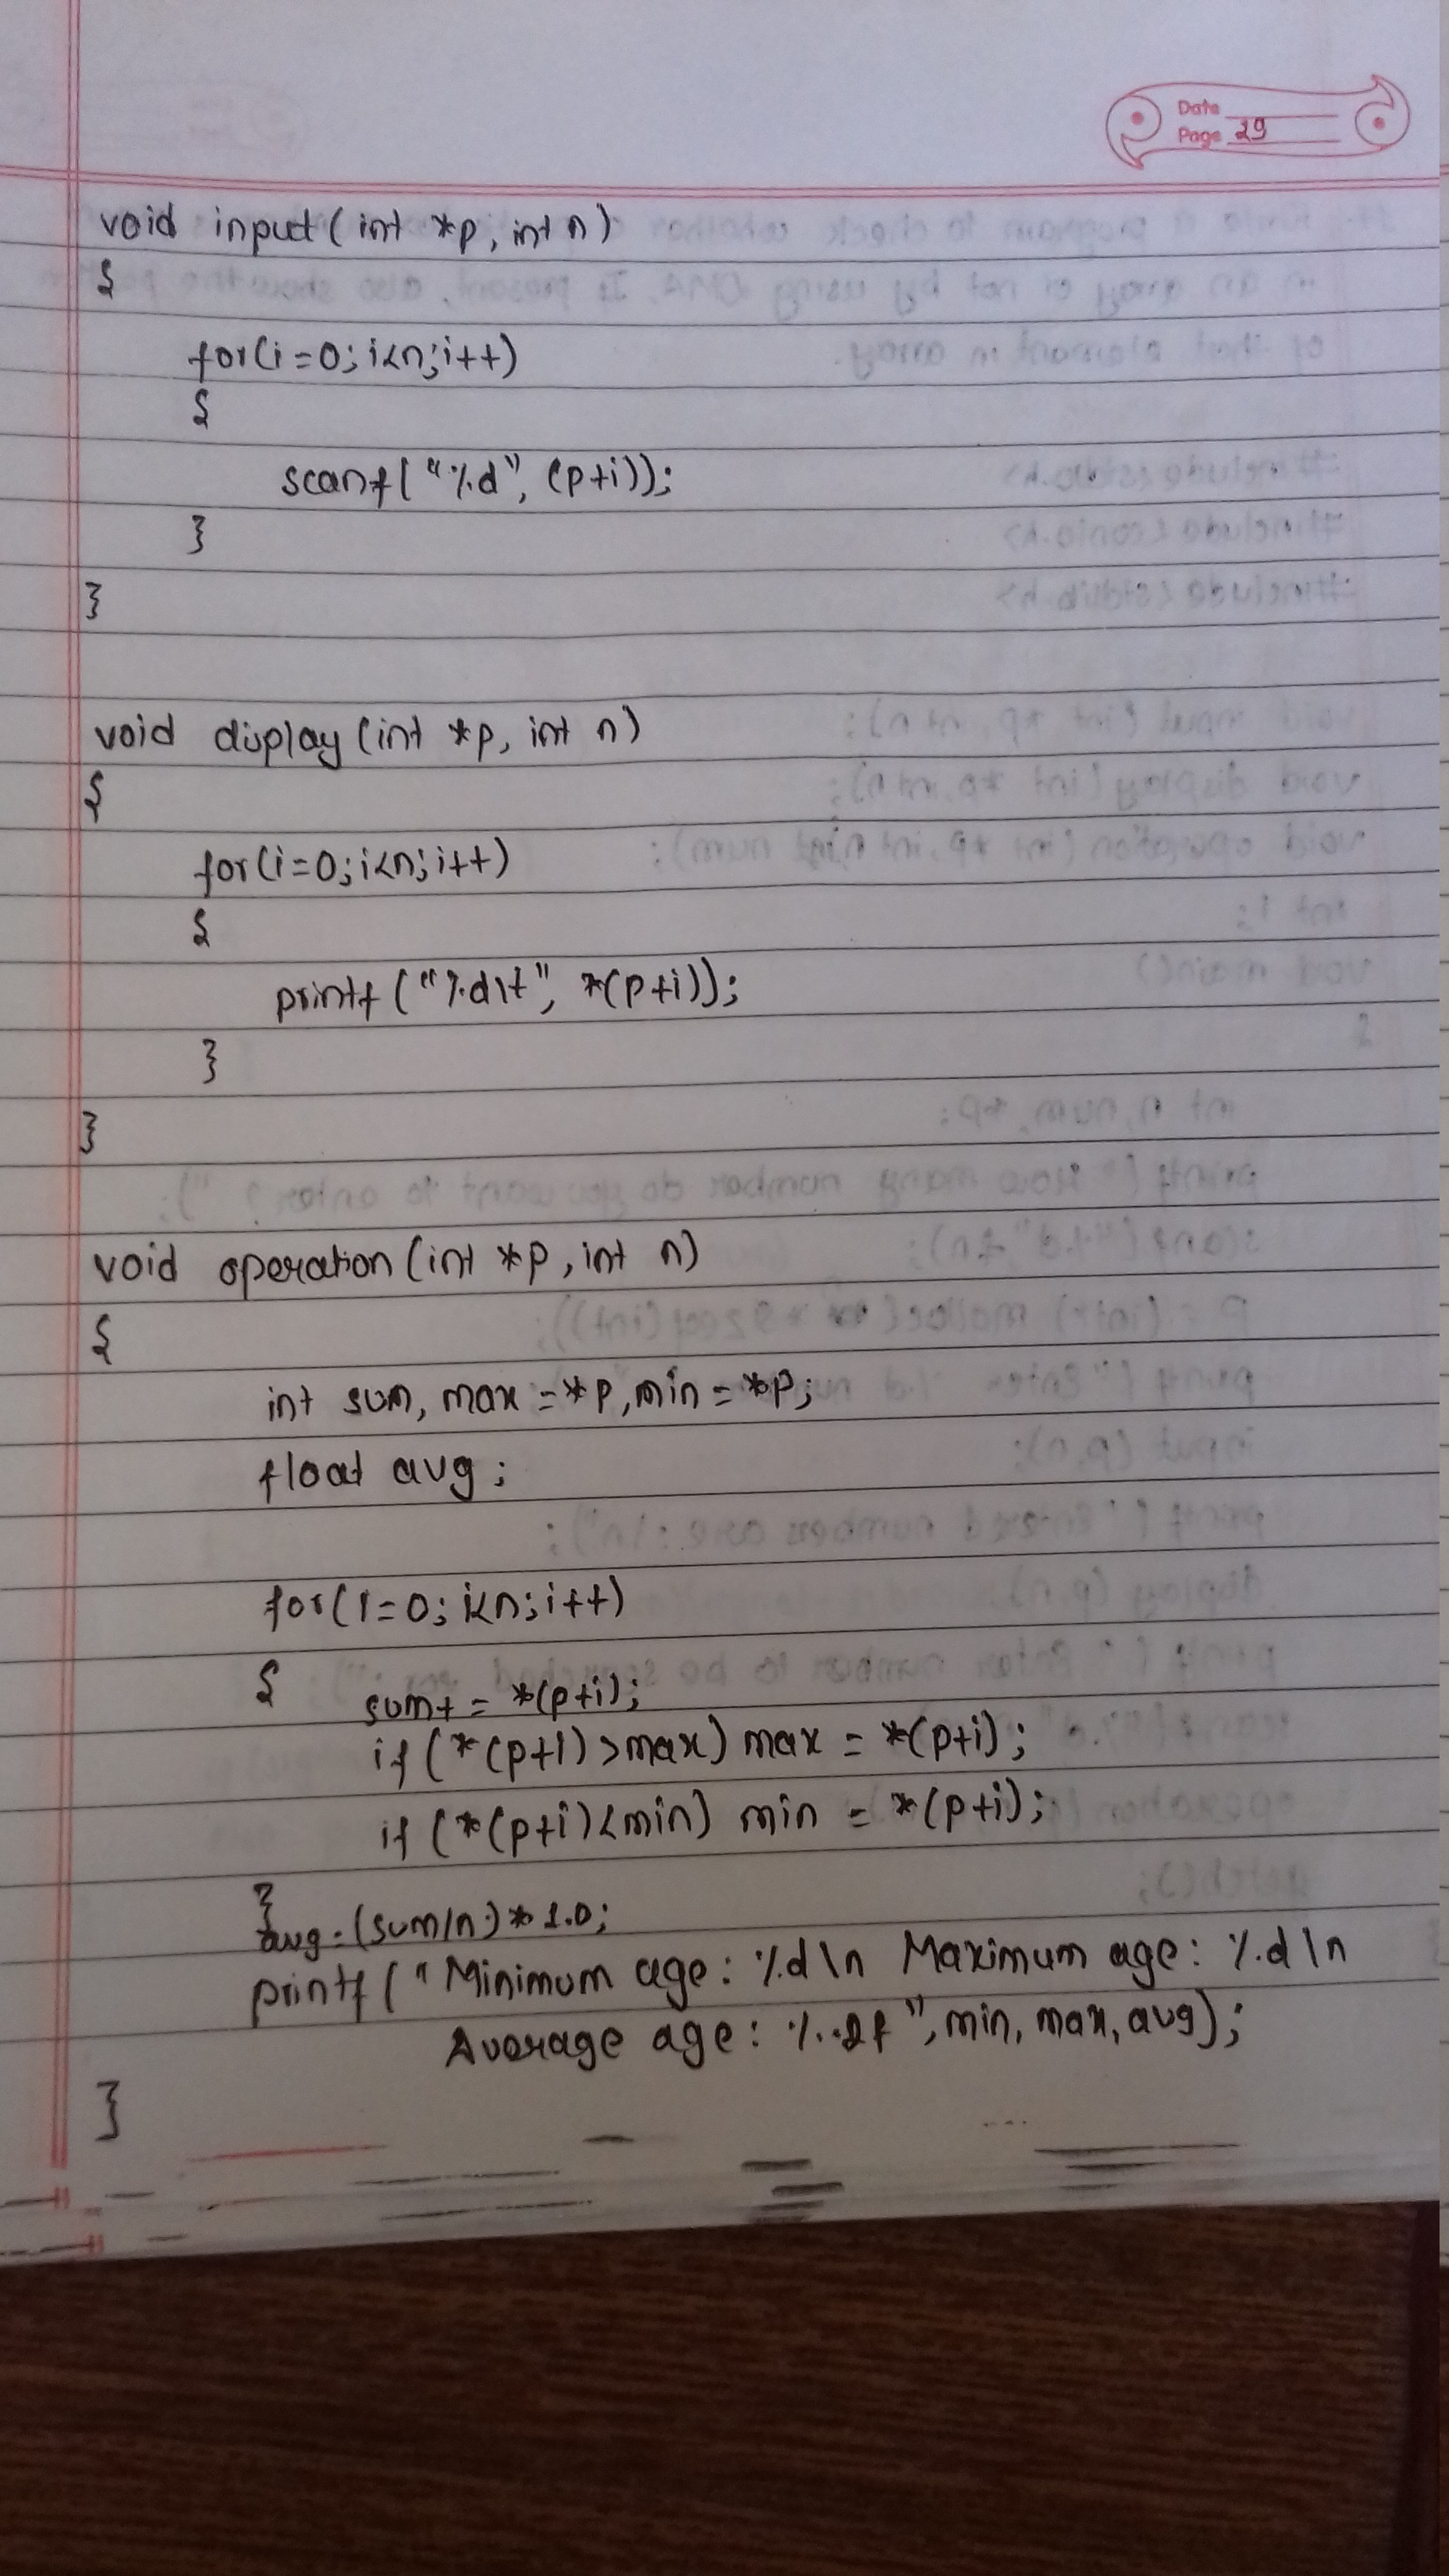 Date
Page 29
void input (int *p, int n)
{
for(i=0; i<n; i++)
{
scanf ("%d", (p+i));
}
}
void display (int *p, int n)
{
for(i=0; i<n; i++)
{
printf ("%d\t", *(p+i));
}
}
void operation (int *p, int n)
{
int sum, max = *p, min = *p;
float avg;
for(i=0; i<n; i++)
{
sum+ = *(p+i);
if (*(p+i) > max) max = *(p+i);
if (*(p+i) < min) min = *(p+i);
}
avg = (sum/n) * 1.0;
printf ("Minimum age: %d \n Maximum age: %d \n
Average age: %.2f", min, max, avg);
}